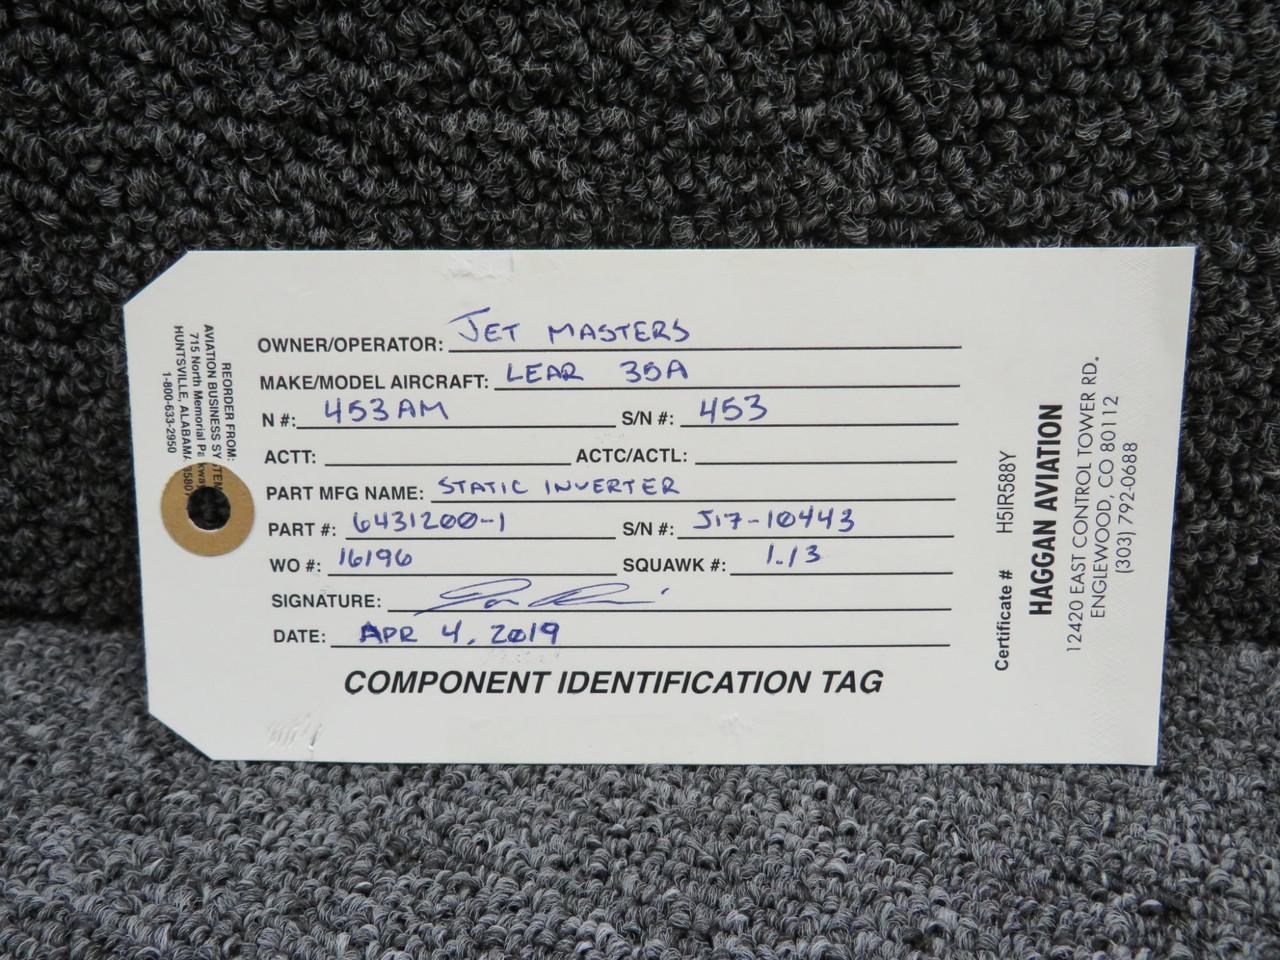 REORDER FROM:
AVIATION BUSINESS SY TEM
715 North Memorial Pa kway
HUNTSVILLE, ALABAMA 3580
1-800-633-2950
OWNER/OPERATOR: JET MASTERS
MAKE/MODEL AIRCRAFT: LEAR 35A
N #: 453AM S/N #: 453
ACTT: ACTC/ACTL:
PART MFG NAME: STATIC INVERTER
PART #: 6431200-1 S/N #: J17-10443
WO #: 16196 SQUAWK #: 1.13
SIGNATURE:
DATE: APR 4, 2019
COMPONENT IDENTIFICATION TAG
Certificate # H5IR588Y
HAGGAN AVIATION
12420 EAST CONTROL TOWER RD.
ENGLEWOOD, CO 80112
(303) 792-0688